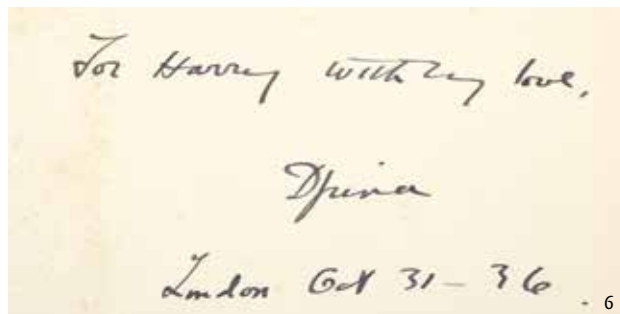 For Harry with my love,
Djuna
London Oct 31 – 36 .
6